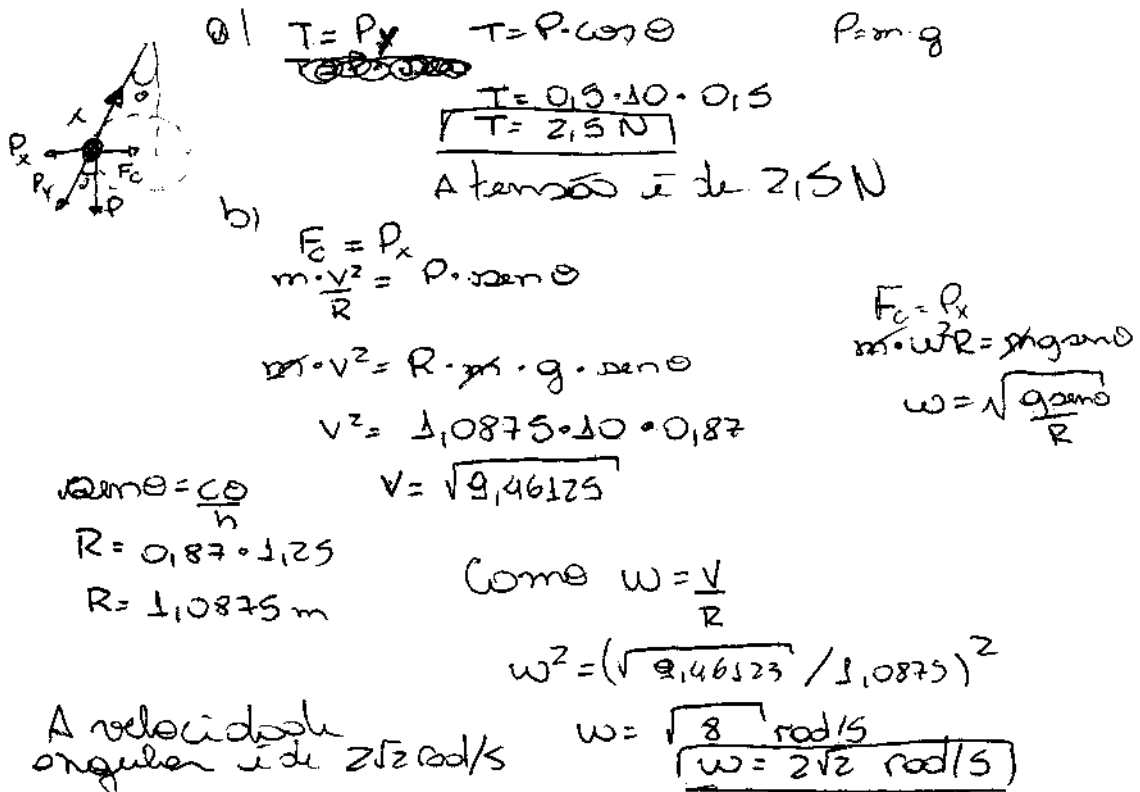 a) T = Py T = P·cosθ P = m·g
T = 0,5·10·0,5
T = 2,5 N
A tensão é de 2,5N
θ
Px Fc
Py P
b)
Fc = Px
m·v²/R = P·senθ
m·v² = R·m·g·senθ
v² = 1,0875·10·0,87
v = √9,46125
Fc = Px
m·ω²R = mgsenθ
ω = √(gsenθ/R)
senθ = co/h
R = 0,87·1,25
R = 1,0875 m
Como ω = v/R
ω² = (√9,46123 / 1,0875)²
ω = √8 rad/s
ω = 2√2 rad/s
A velocidade
angular é de 2√2 rad/s